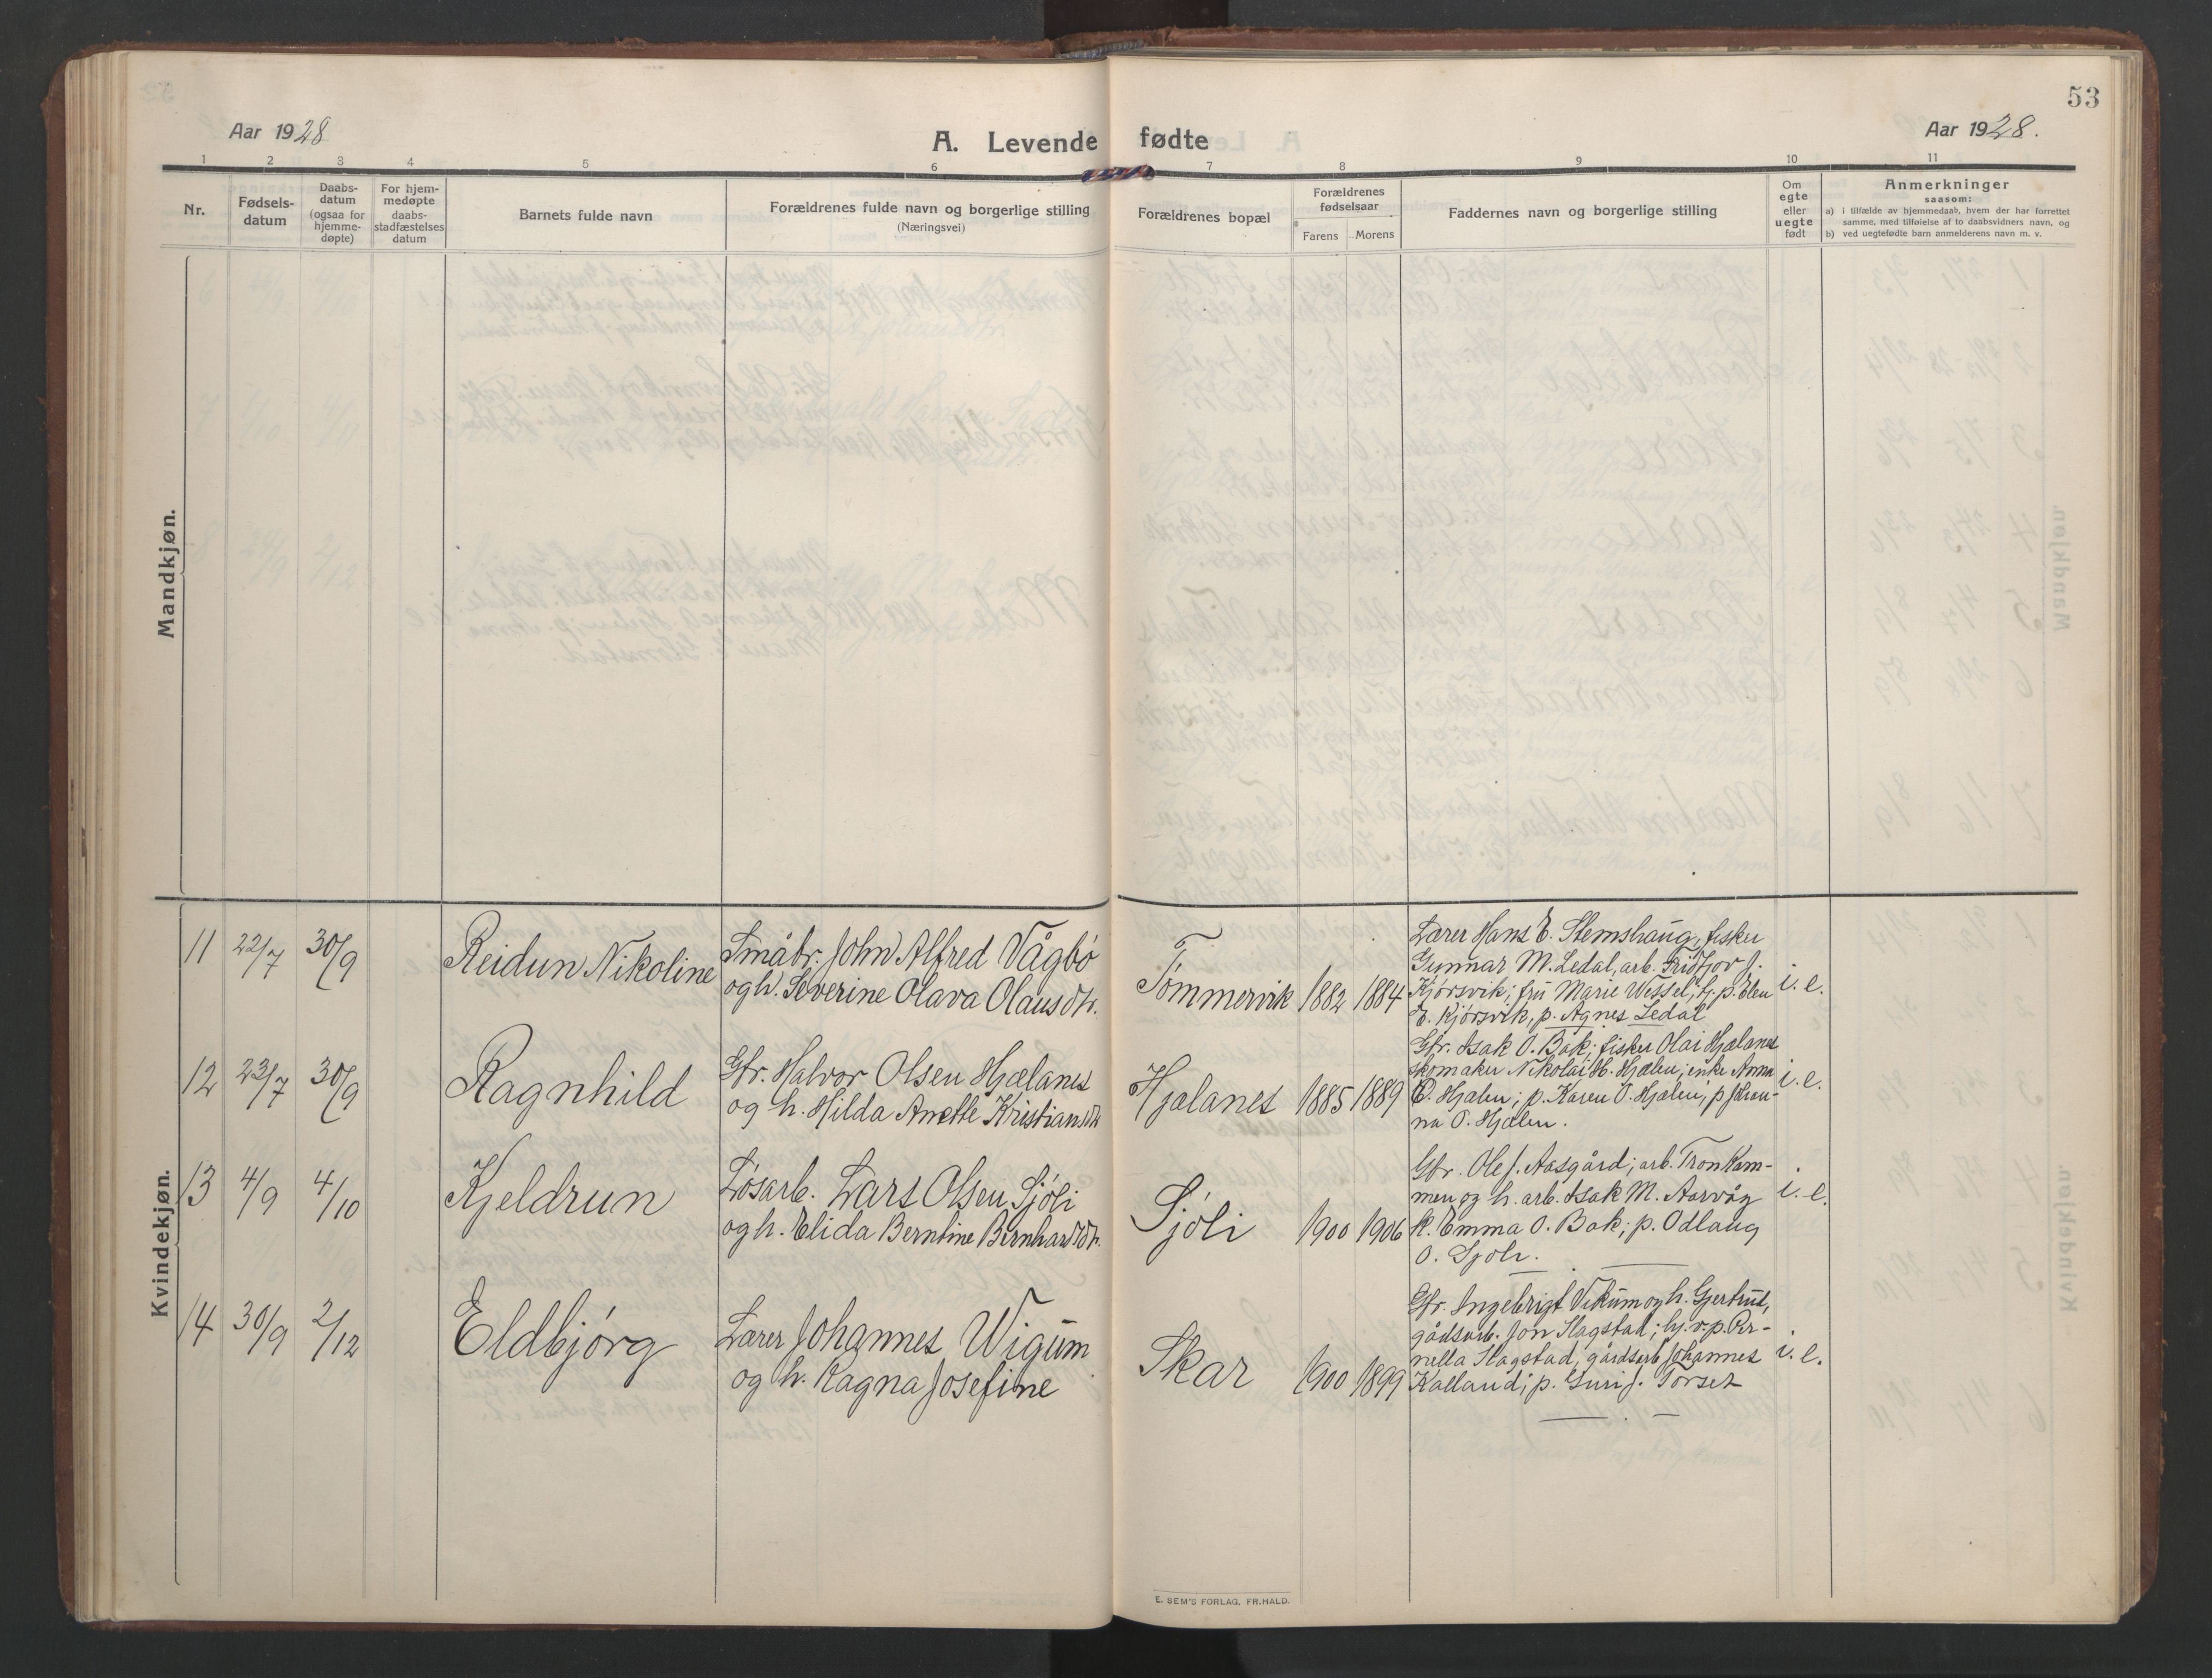 53
Aar 1928
A. Levende fødte
Aar 1928.
1 2 3 4 5 6 7 8 9 10 11
Nr.
Fødsels-
datum
Daabs-
datum
(ogsaa for
hjemme-
døpte)
For hjem-
medøpte
daabs-
stadfæstelses
datum
Barnets fulde navn
Forældrenes fulde navn og borgerlige stilling
(Næringsvei)
Forældrenes bopæl
Forældrenes
fødselsaar
Farens Morens
Faddernes navn og borgerlige stilling
Om
egte
eller
uegte
født
Anmerkninger
saasom:
a) i tilfælde av hjemmedaab, hvem der har forrettet
samme, med tilføielse af to daabsvidners navn, og
b) ved uegtefødte barn anmelderens navn m. v.
Mandkjøn.
Kvindekjøn.
11 22/7 30/9 Reidun Nikoline
Småbr. John Alfred Vågbø
og h. Severine Olava Olausdtr.
Tømmervik 1882 1884
Lærer Hans E. Stemshaug, fisker
Gunnar M. Ledal, arb. Fridtjov J.
Kjørsvik; fru Marie Wessel; hj. p. Elen
E. Kjørsvik, p. Agnes Ledal
i. e.
12 23/7 30/9 Ragnhild
Gbr. Halvor Olsen Hjælanes
og h. Hilda Anette Kristiansdtr
Hjalanes 1885 1889
Gbr. Isak O. Bak; fisker Olai Hjælanes
skomaker Nikolai H. Hjælen; enke Anna
O. Hjalen; p. Karen O. Hjælen; p Johan-
na O. Hjælen.
i. e.
13 4/9 4/10 Kjeldrun
Løsarb. Lars Olsen Sjøli
og h. Elida Berntine Bernhardsdtr.
Sjøli 1900 1906
Gbr. Ole J. Aasgård; arb. Tron Ram-
men og h. arb. Isak M. Aarvåg
k. Emma O. Bak; p. Odlaug
O. Sjøli.
i. e.
14 30/9 2/12 Eldbjørg
Lærer Johannes Wigum
og h. Ragna Josefine
Skar 1900 1899
Gbr. Ingebrigt Vikum og h. Gjertrud,
gårdsarb. Jon Slagstad; hj. v. p. Per-
nella Slagstad, gårdsarb Johannes
Kalland; p. Guri J. Torset
i. e.
E. SEM'S FORLAG, FR.HALD.